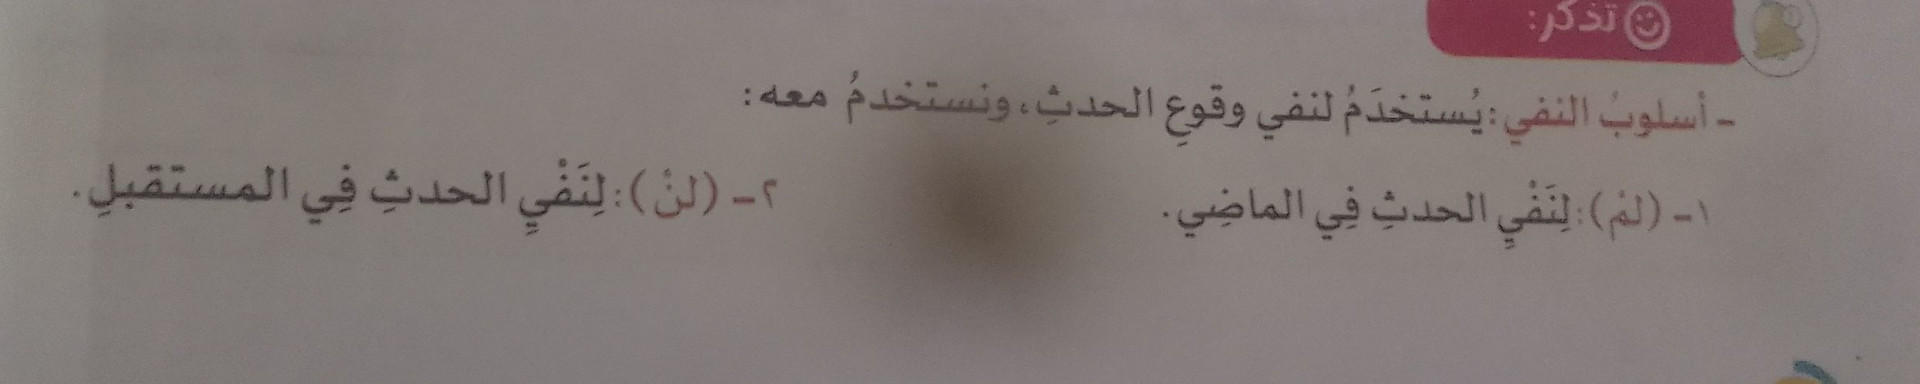 تذكر:
- أسلوبُ النفي: يُستخدَمُ لنفي وقوعِ الحدثِ، ونستخدمُ معه:
١- (لمْ): لِنَفْيِ الحدثِ فِي الماضِي. ٢- (لنْ): لِنَفْيِ الحدثِ فِي المستقبلِ.